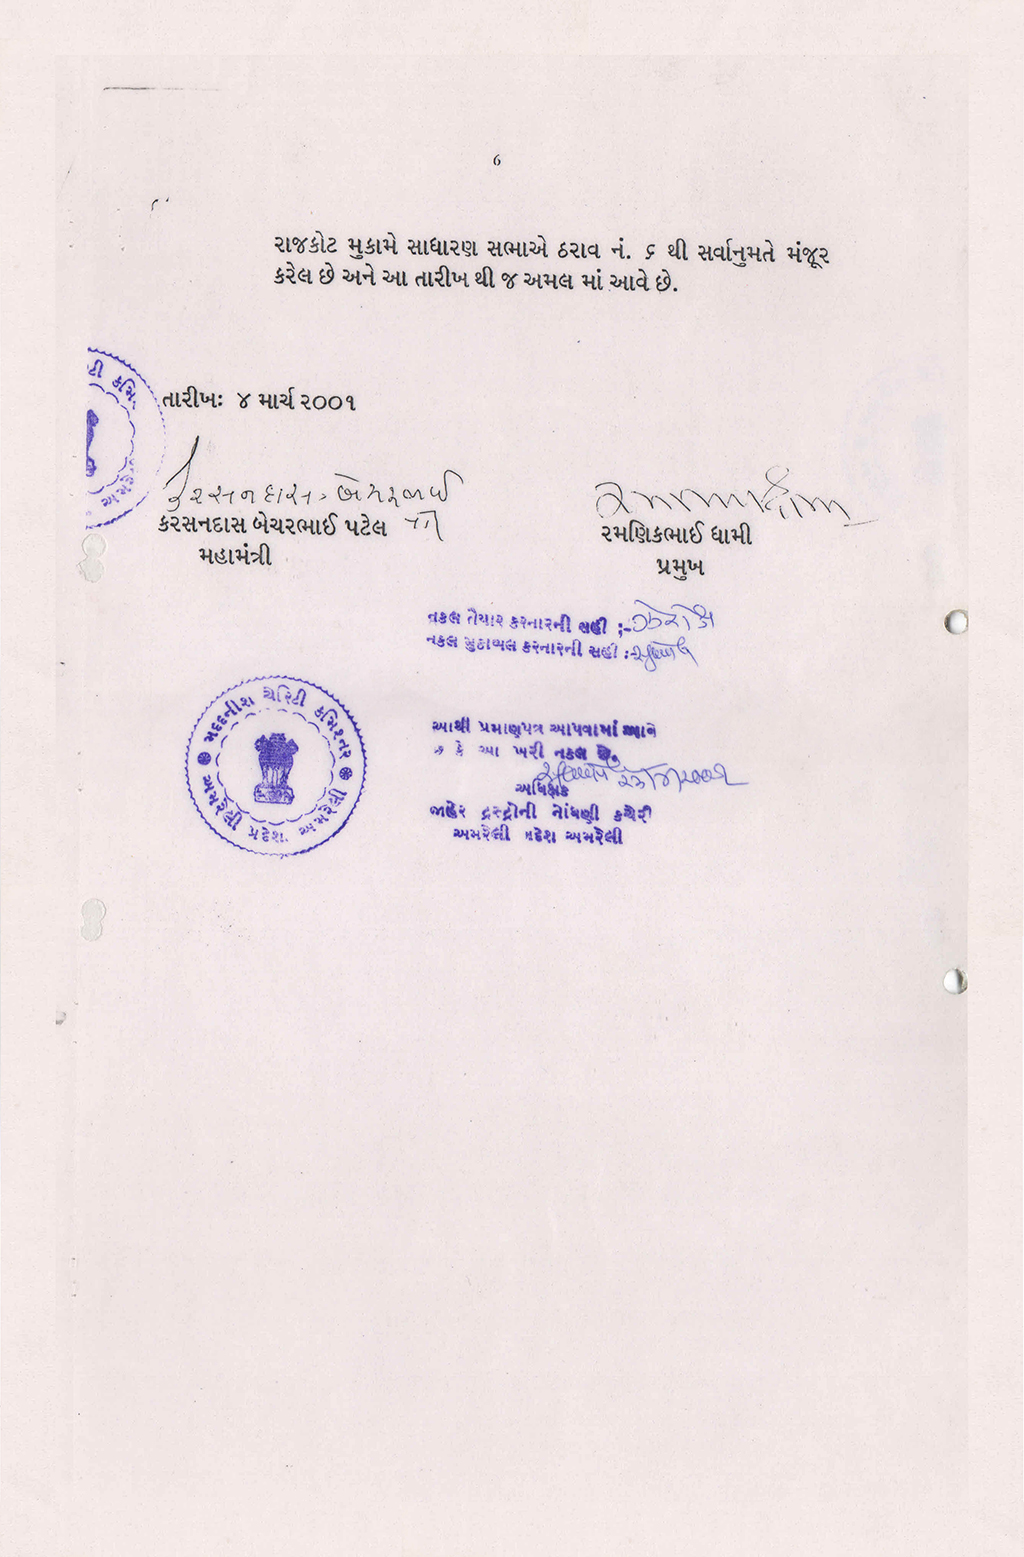 6
રાજકોટ મુકામે સાધારણ સભાએ ઠરાવ નં. ૬ થી સર્વાનુમતે મંજૂર
કરેલ છે અને આ તારીખ થી જ અમલ માં આવે છે.
ટી કમિ
તારીખઃ ૪ માર્ચ ૨૦૦૧
કરસનદાસ બેચરભાઈ
કરસનદાસ બેચરભાઈ પટેલ
રમણિકભાઈ ધામી
મહામંત્રી
પ્રમુખ
નકલ તૈયાર કરનારની સહી :-
નકલ મુકાબલ કરનારની સહી :
મદદનીશ ચેરિટી કમિશ્નર
અમરેલી પ્રદેશ. અમરેલી
આથી પ્રમાણપત્ર આપવામાં આવે
છે કે આ ખરી નકલ છે.
અધિક્ષક
જાહેર ટ્રસ્ટોની નોંધણી કચેરી
અમરેલી પ્રદેશ અમરેલી